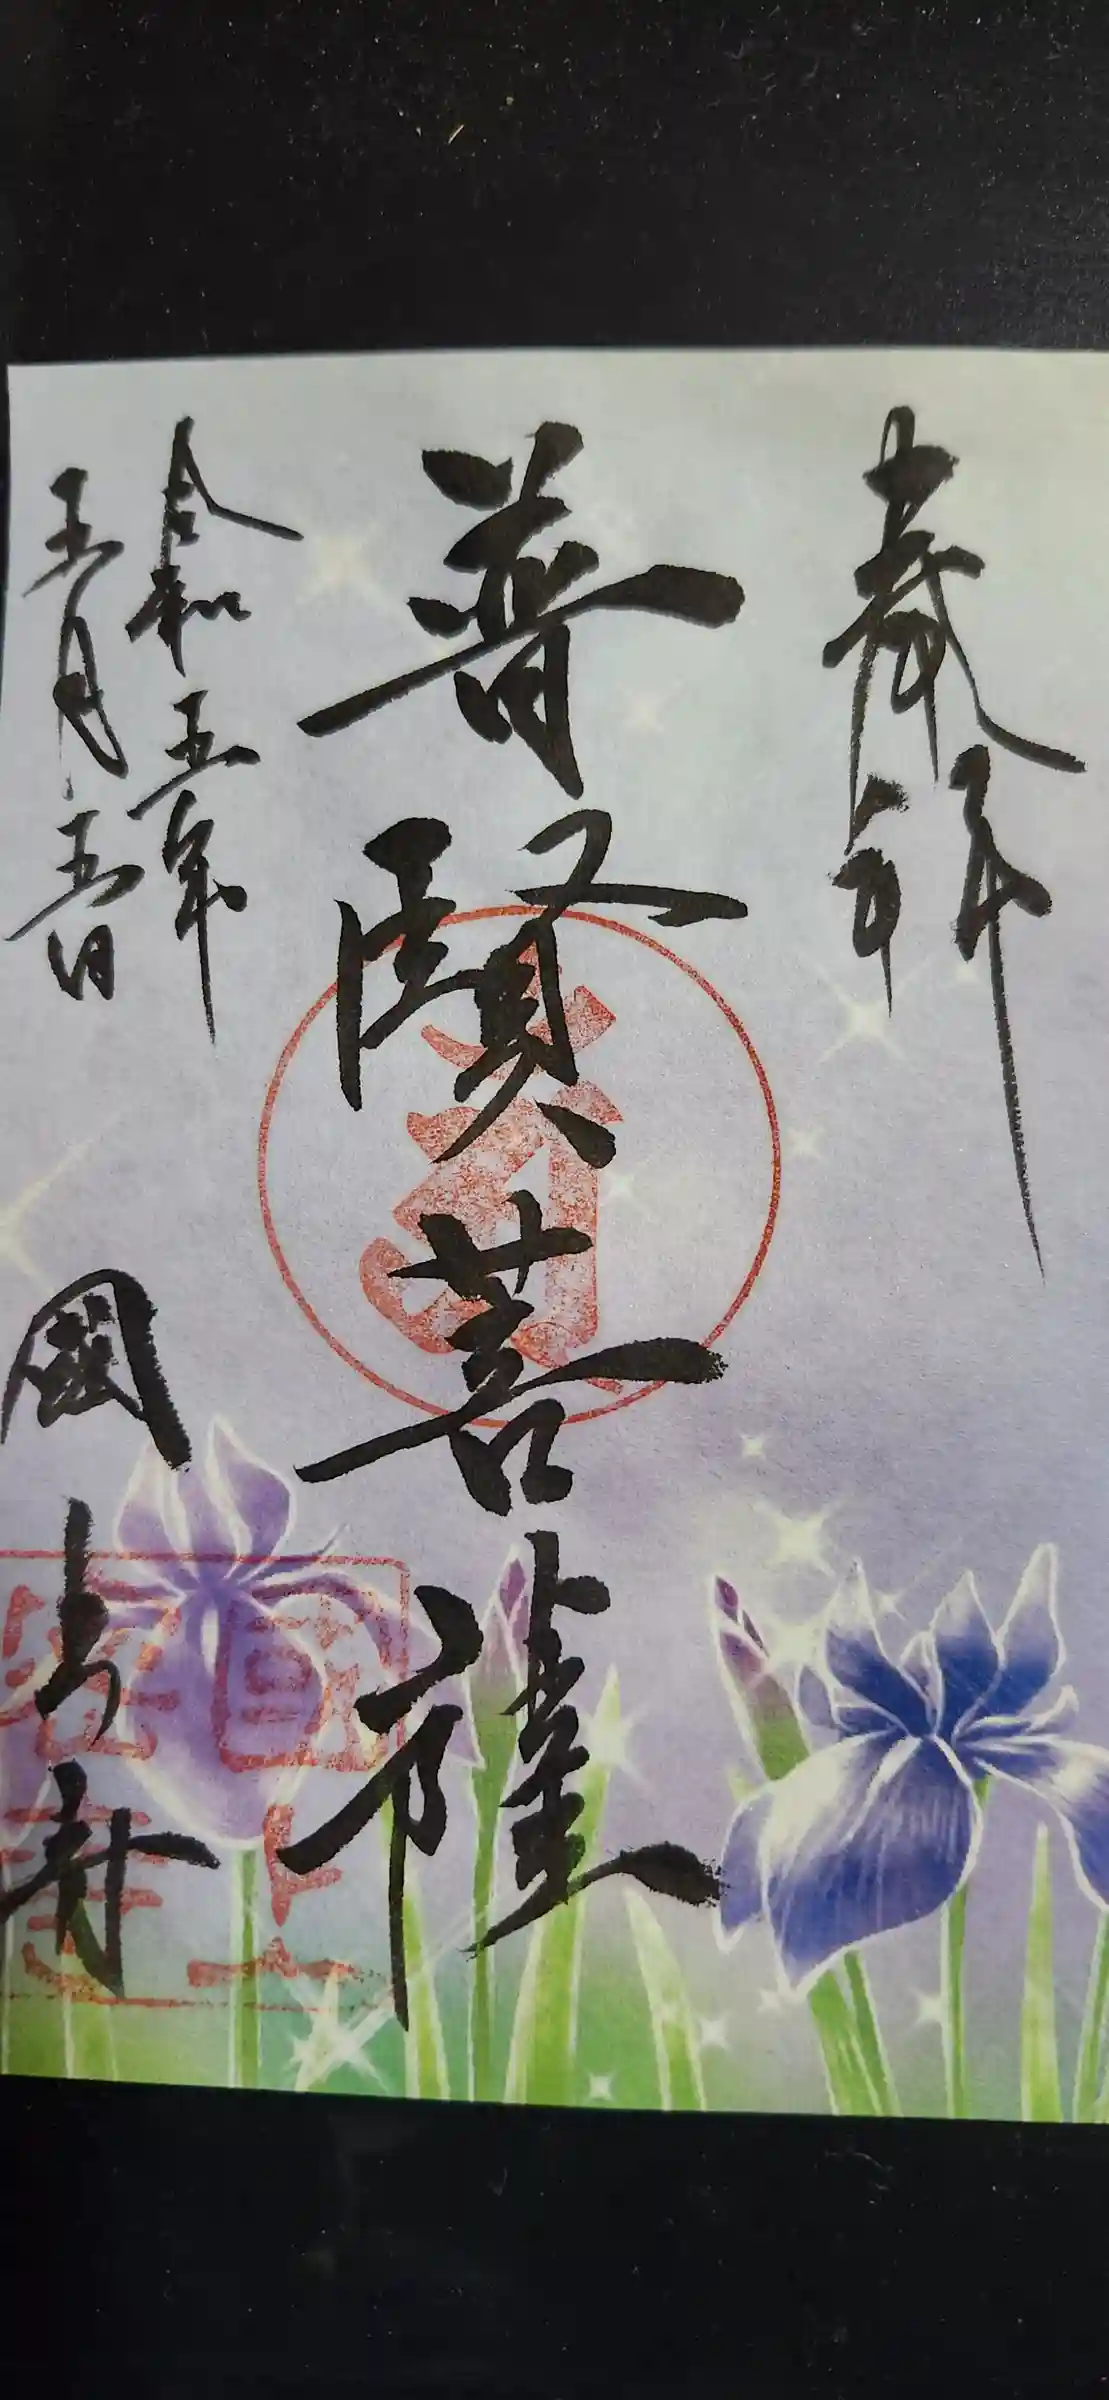 奉拝
普賢菩薩
令和五年
五月五日
國上寺